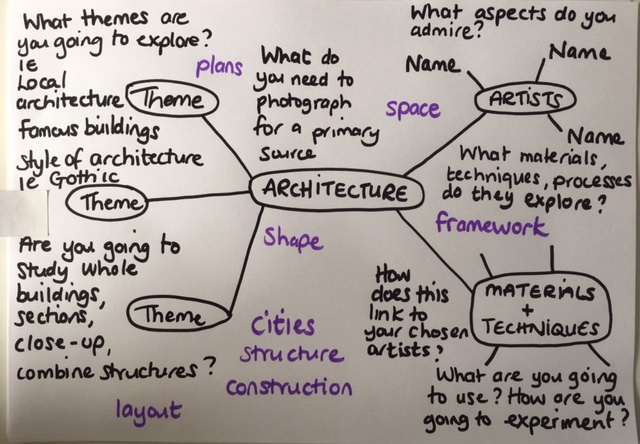 What themes are
you going to explore?
ie
Local
architecture
famous buildings
style of architecture
ie Gothic
Theme
plans
What do
you need to
photograph
for a primary
source
space
What aspects do you
admire?
Name
Name
ARTISTS
Name
What materials,
techniques, processes
do they explore?
framework
Theme
ARCHITECTURE
Shape
Are you going to
study whole
buildings,
sections,
close-up,
combine structures?
Theme
layout
Cities
structure
construction
How
does this
link to
your chosen
artists?
MATERIALS
+
TECHNIQUES
What are you going
to use? How are you
going to experiment?